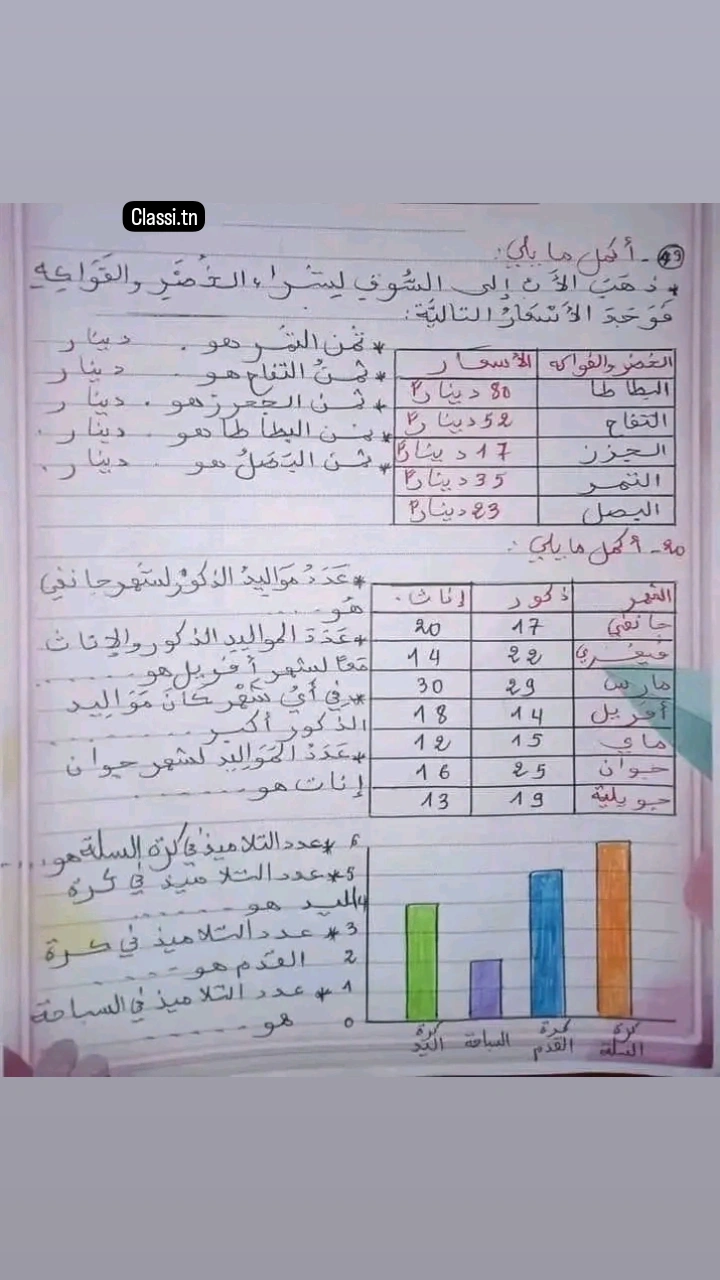 Classi.tn
49 - أكمل ما يلي:
* ذهَبَ الأبُ إلى السُّوقِ لِشراءِ الخُضَرِ والفَوَاكِهِ
فَوَجَدَ الأَسْعَارُ التاليَّة:
* ثمَن التمْر هو . دينار
* ثمنُ التفاح هو . . دينار
* ثمن الجزر هو . دينار
* ثمن البطاطا هو . . دينار .
* ثمن البَصَلُ هو . . دينار .
الخضر والفواكه الأسعار
البطاطا 80 دينار
التفاح 52 دينار
الجزر 17 دينار
التمر 35 دينار
البصل 23 دينار
20 - أكمل ما يلي:
الشهر ذكور إناث
جانفي 17 20
فيفري 22 14
مارس 29 30
أفريل 14 18
ماي 15 12
جوان 25 16
جويلية 19 13
* عَدَدُ مَوَاليدُ الذكورْ لشَهر جانفي
هُو . . . . .
* عَدَدَ المواليد الذكور والإناث
معًا لشهر أفريل هو . . . . . . .
* في أيُّ شَهْر كانَ مَوَاليد
الذكور أكبر . . . . . . .
* عَدَدَ المَوَاليد لشهر جوان
إناث هو . . . . . . .
* عدد التلاميذ في كرة السلة هو . . . .
* عدد التلاميذ في كرة
اليد هو . . . . . .
* عدد التلاميذ في كرة
القدم هو . . . . . .
* عدد التلاميذ في السباحة
هو . . . . . .
6
5
4
3
2
1
0
كرة السلة
كرة القدم
السباحة
كرة اليد